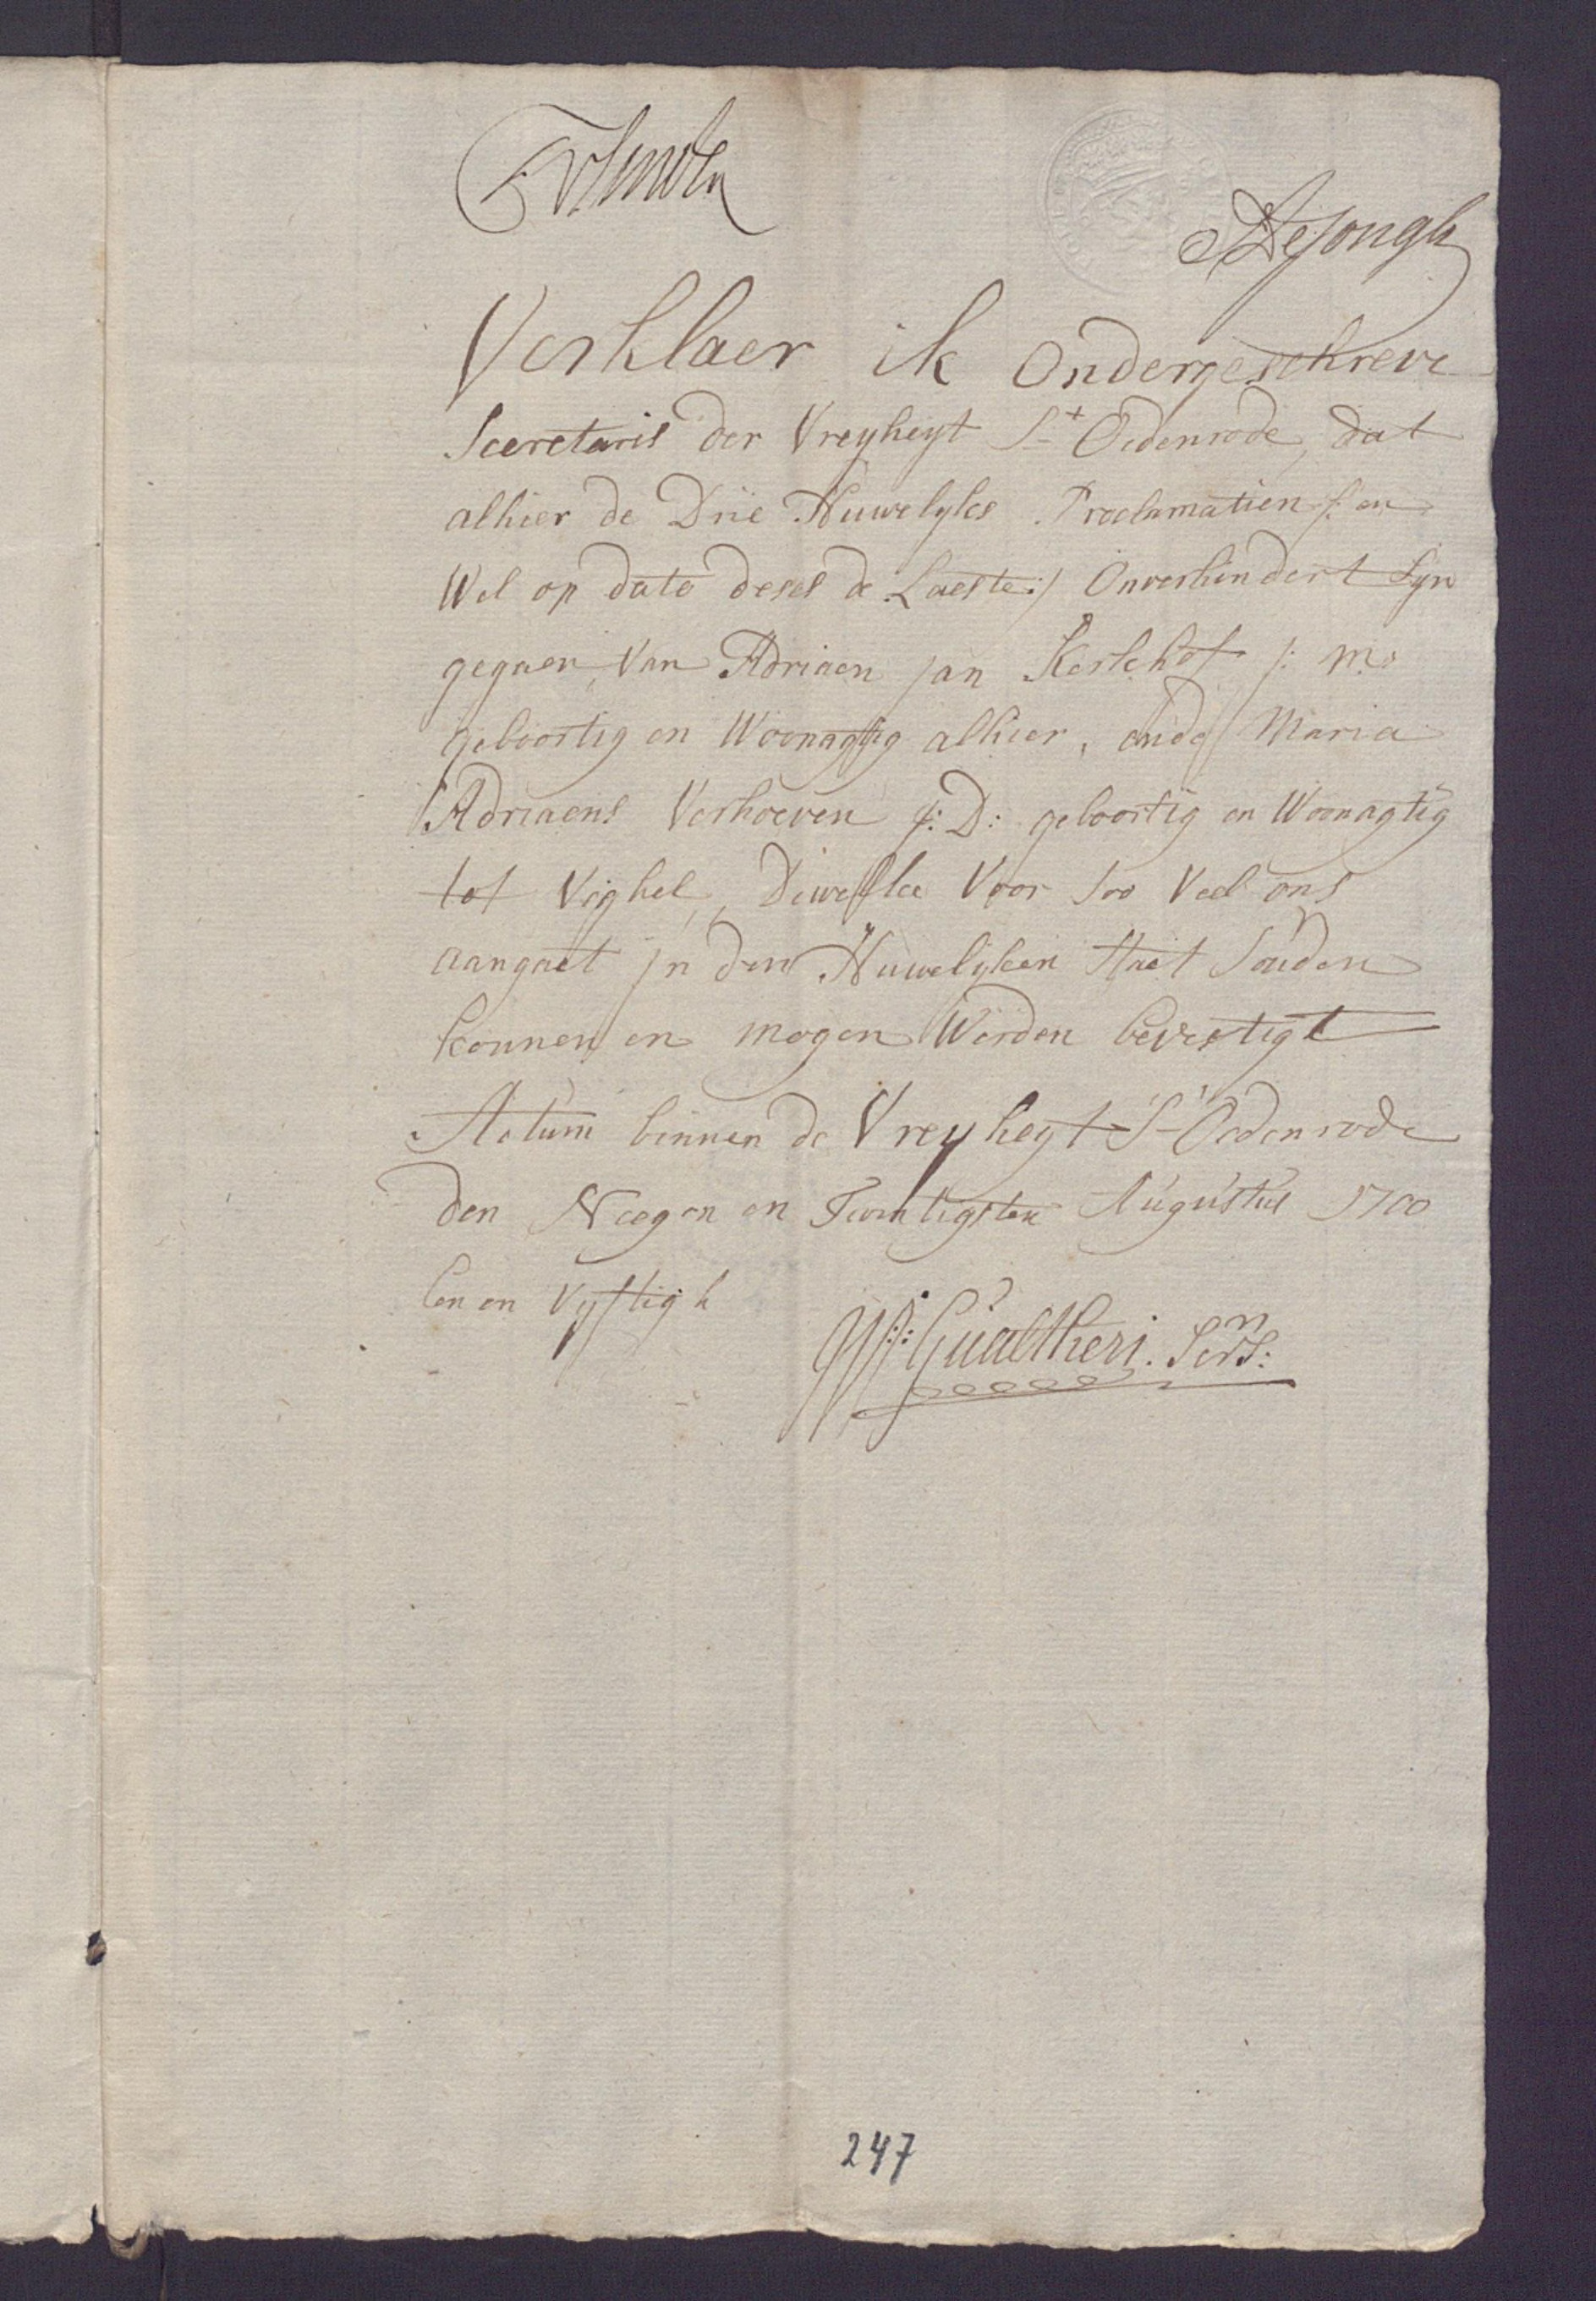 ADeJongh
Verklaer ik Ondergeschreve
Secretaris der Vreyheyt St Oedenrode, dat
alhier de Drie Huwelykse Proclamatien /: en
Wel op dato deses de Laeste :/ Onverhindert Syn
gegaen, Van Adriaen Jan Kerkhof j: m:
geboortig en Woonagtig alhier, ende Maria
Adriaens Verhoeven j: D: geboortig en Woonagtig
tot Veghel, Diwelke Voor soo Veel ons
aangaet jn den Huwelyken Staet Souden
konnen en mogen Worden bevestigt
Actum binnen de Vreyheyt St Oedenrode
den Neegen en Twintigsten Augustus 1700
Een en Vyftigh
Gualtheri. Secrs:
247